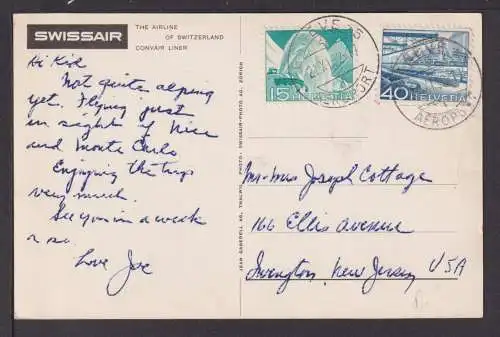 SWISSAIR
THE AIRLINE
OF SWITZERLAND
CONVAIR LINER
Hi Kid
Not quite alping
yet. Flying just
in sight of Nice
and Monte Carlo
Enjoying the trip
very much.
See you in a week
or so.
Love Joe
JEAN HABERELL AG, THALWIL PHOTO: SWISSAIR-PHOTO AG, ZÜRICH
15 HELVETIA
40 HELVETIA
AEROPORT
AEROPORT
Mr-Mrs Joseph Cottage
166 Ellis Avenue
Irvington, New Jersey USA